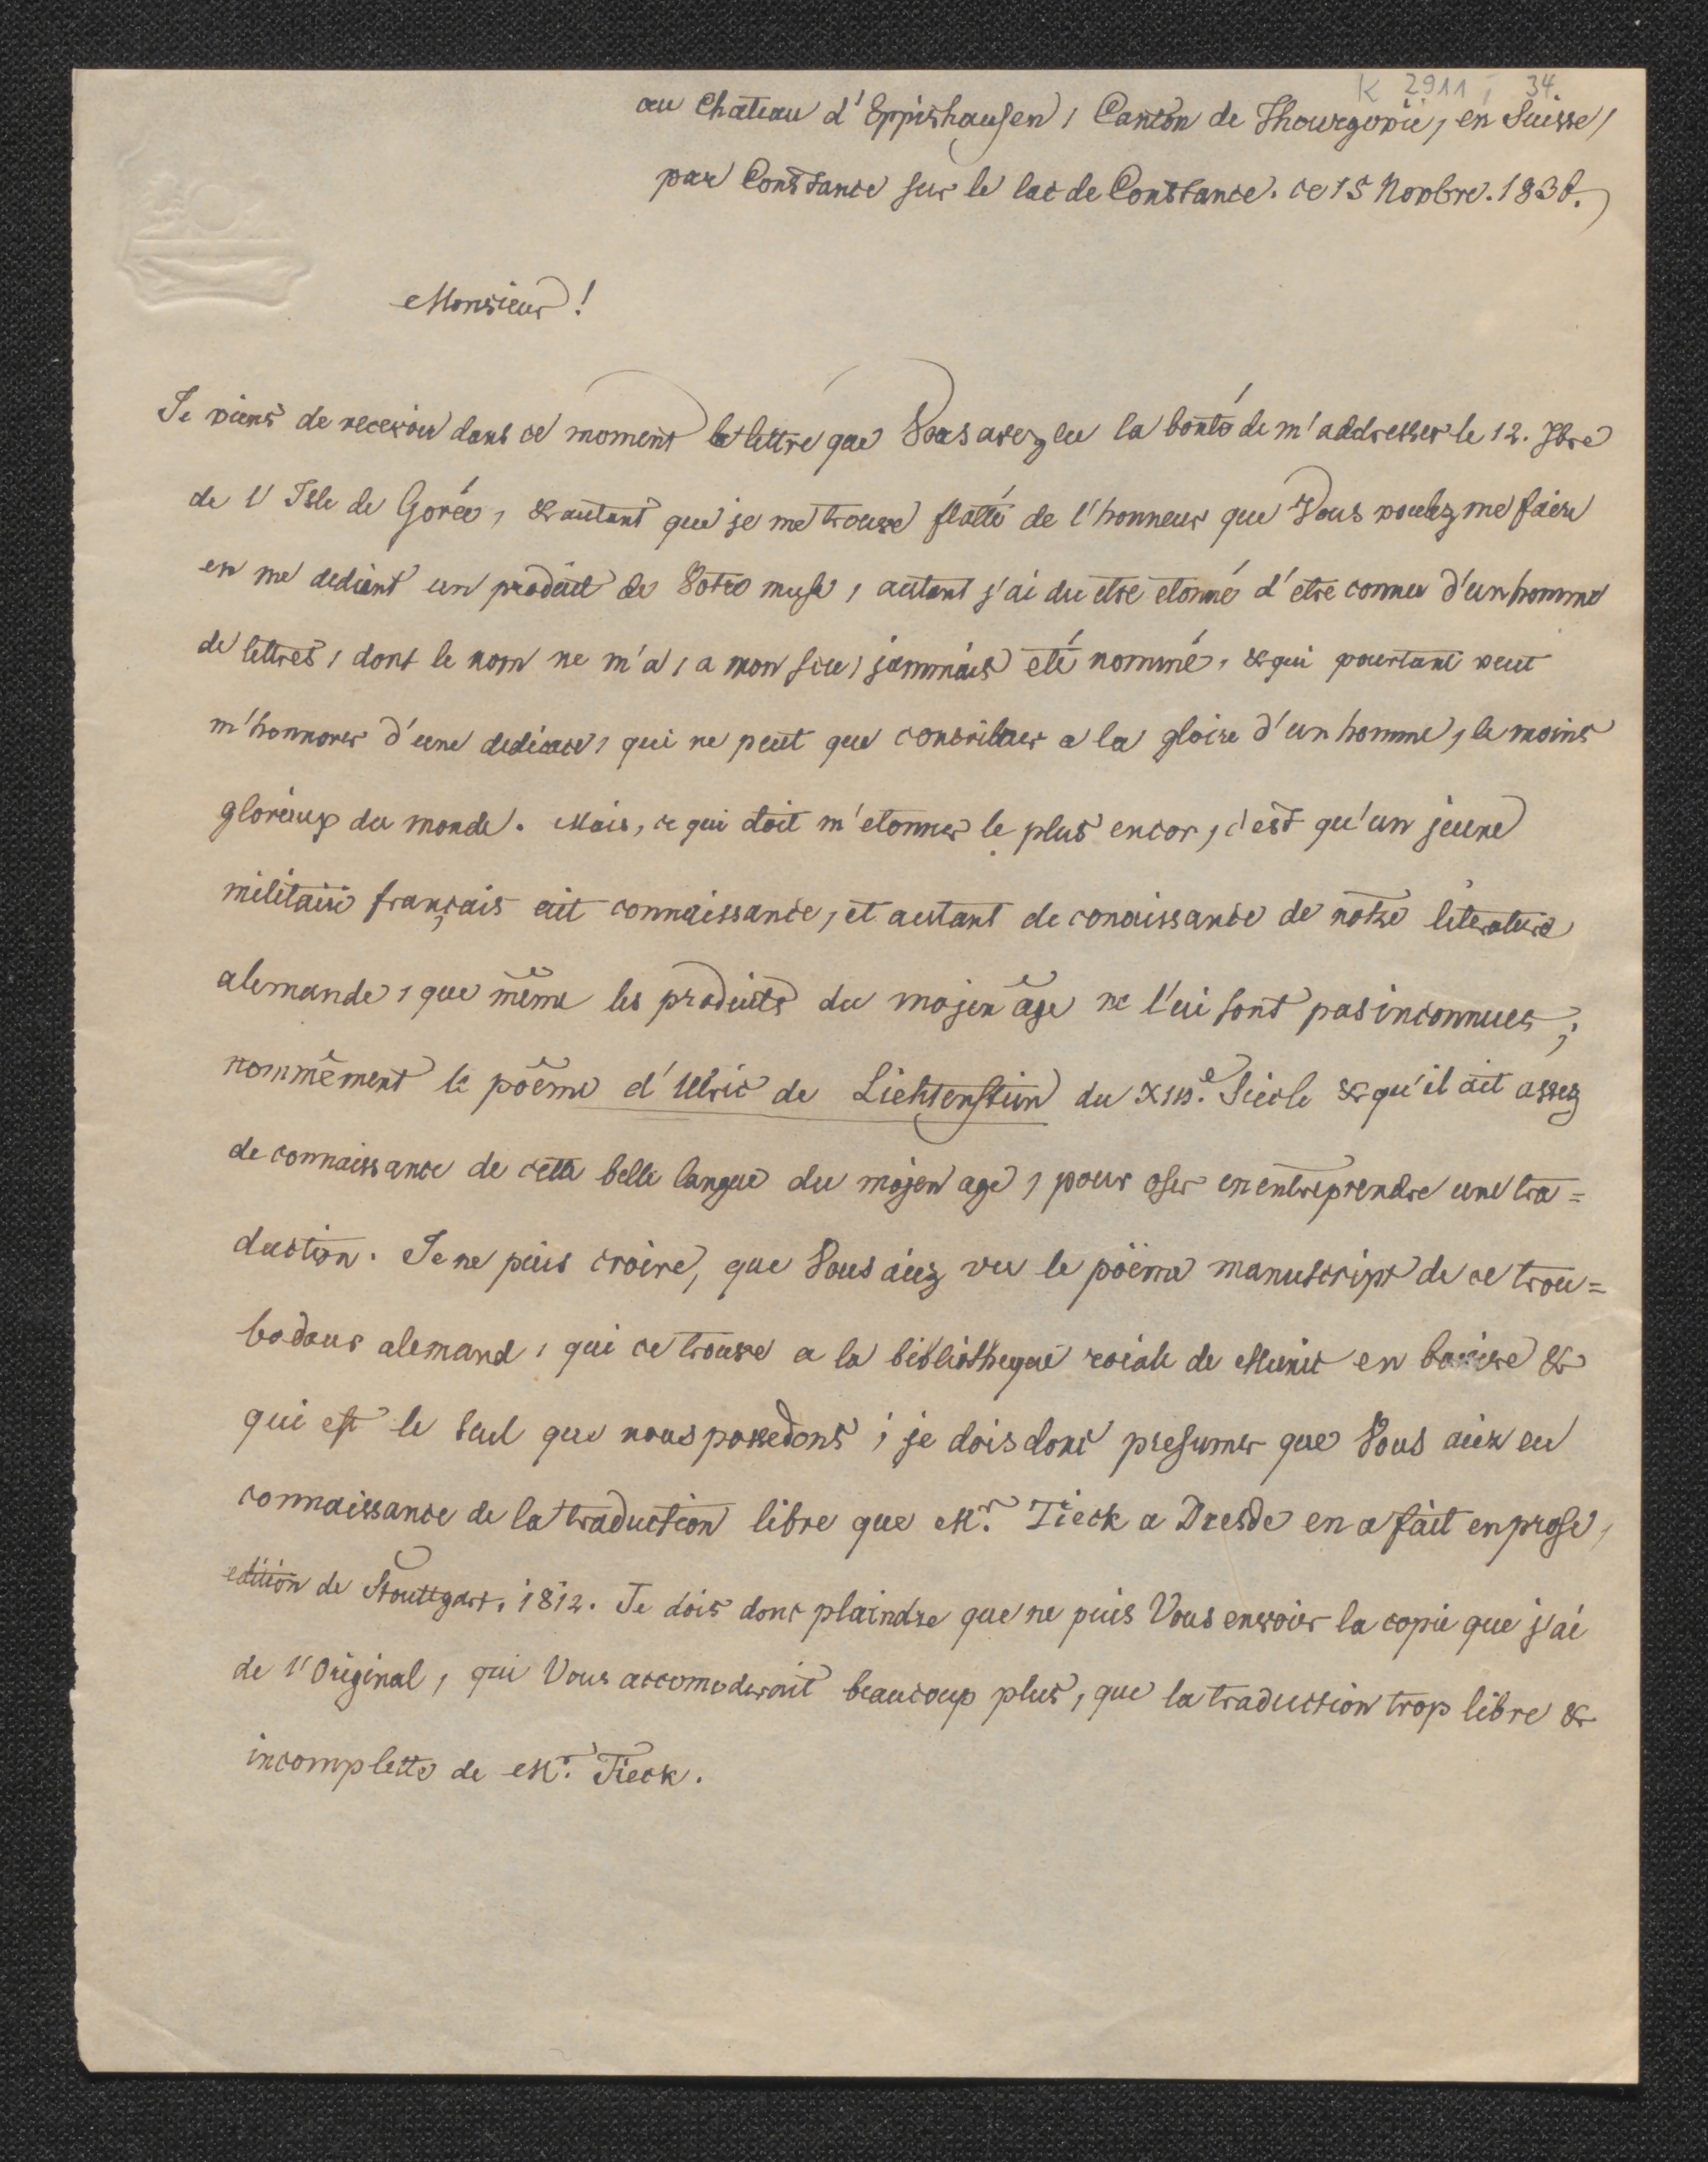 K 2911, 34.
au Chateau d'Eppishausen, Canton de Thourgovie, en Suisse,
par Constance sur le lac de Constance. ce 15 Novbre.
Monsieur!
Je viens de recevoir dans ce moment la lettre que Vous avez eu la bonté de m'addresser le 12.
de l'Isle de Gorée, & autant que je me trouve flatté de l'honneur que Vous voulez me faire
en me dediant un produit de Votre muse, autant j'ai du etre etonné d'etre connu d'un homme
de lettres, dont le nom ne m'a, a mon scu, jammais eté nommé, & qui pourtant veut
m'honnorer d'une dedicace, qui ne peut que contribuer a la gloire d'un homme, le moins
glorieux du monde. Mais, ce qui doit m'etonner le plus encor, c'est qu'un jeune
militaire français ait connaissance, et autant de conaissance de notre literature
alemande, que même les produits du mojen âge ne l'ui sont pas inconnues;
nommêment le poême d'Ulric de Lichtenstein du XIII.e Siecle & qu'il ait assez
de connaissance de cette belle langue du mojen age, pour oser en entreprendre une tra=
duction. Je ne puis croire, que Vous aiez vu le poëme manuscript de ce trou=
badour alemand, qui ce trouve a la bibliotheque roiale de Munic en baviere &
qui est le seul que nous possedons; je dois donc presumer que Vous aiez eu
connaissance de la traduction libre que Mr. Tieck a Dresde en a fait en prose,
edition de Stouttgart, 1812. Je dois donc plaindre que ne puis Vous envoier la copie que j'ai
de l'Original, qui Vous accomoderait beaucoup plus, que la traduction trop libre &
incomplette de Mr. Tieck.